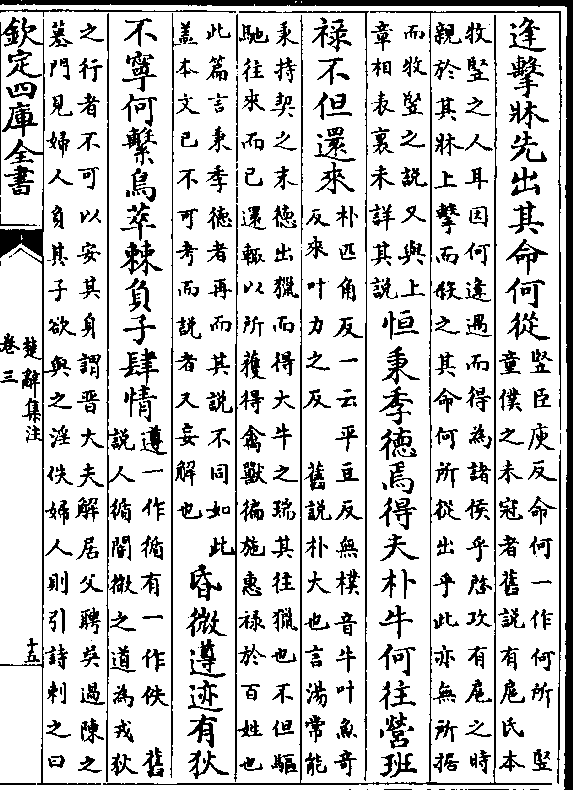 逢擊牀先出其命何從
豎臣庾反命何一作何所 豎
童僕之未冠者舊說有扈氏本
牧豎之人耳因何逢遇而得為諸侯乎啓攻有扈之時
親於其牀上擊而殺之其命何所從出乎此亦無所據
而牧豎之說又與上
章相表裏未詳其說
恒秉季德焉得夫朴牛何往營班
祿不但還來
朴匹角反一云平豆反無樸音牛叶魚奇
反來叶力之反 舊說朴大也言湯常能
秉持契之末德出獵而得大牛之瑞其往獵也不但驅
馳往來而已還輒以所獲得禽獸徧施惠祿於百姓也
此篇言秉季德者再而其說不同如此
蓋本文已不可考而說者又妄解也
昏微遵迹有狄
不寧何繁鳥萃棘負子肆情
遵一作循有一作佚 舊
說人循闇微之道為戎狄
之行者不可以安其身謂晉大夫解居父聘吳過陳之
墓門見婦人負其子欲與之淫佚婦人則引詩刺之曰
欽定四庫全書
楚辭集注
卷三
十五